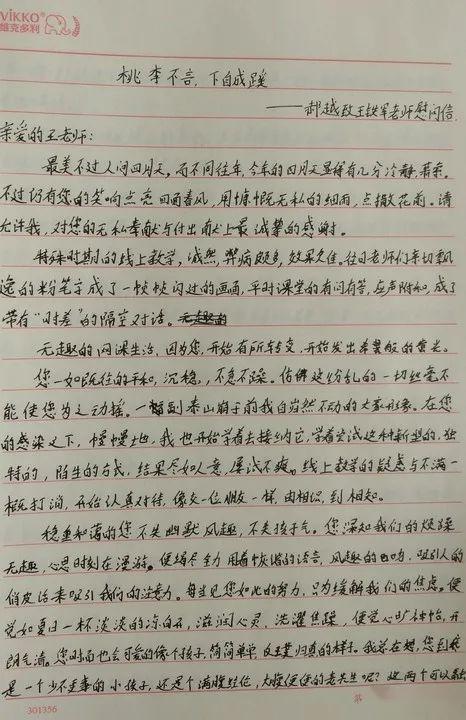 VIKKO®
维克多利
桃李不言,下自成蹊
——郝越致王铁军老师慰问信
亲爱的王老师:
最美不过人间四月天,而不同往年,今年的四月天显得有几分冷静,萧索。
不过仍有您的笑响点亮四面春风,用慷慨无私的细雨,点撒花前。请
允许我,对您的无私奉献与付出献上最诚挚的感谢。
特殊时期的线上教学,诚然,弊病颇多,效果欠佳。往日老师们亲切飘
逸的粉笔字成了一帧帧闪过的画面,平时课堂的有问有答,应声附和,成了
带有“时差”的隔空对话。
无趣的网课生活,因为您,开始有所转变,开始发出
您一如既往的平和,沉稳,不急不躁。仿佛这纷乱的一切丝毫不
能使您为之动摇。一副泰山崩于前我自岿然不动的大家形象。在您
的感染之下,慢慢地,我也开始学着去接纳它,学着尝试这种新型的,独
特的,陌生的方式,结果尽如人意,屡试不爽。线上教学的疑虑与不满一
概打消,开始认真对待,像交一位朋友一样,由相识,到相知。
稳重和蔼的您不失幽默风趣,不失孩子气。您深知我们的烦躁
无趣,心思时刻在漫游。便竭尽全力用着诙谐的语言,风趣的口吻,吸引人的
俏皮话来吸引我们的注意力。每当见您如此的努力,只为缓解我们的焦虑。便
觉如夏日一杯淡淡的凉白开,滋润心灵,洗濯焦躁,便觉心旷神怡,开
朗气清。您时而也会可爱的像个孩子,简简单单,返璞归真的样子。我总在想,您到底
是一个少不更事的小孩子,还是个满腹经纶,大腹便便的老先生呢?这两个可以
301356
第